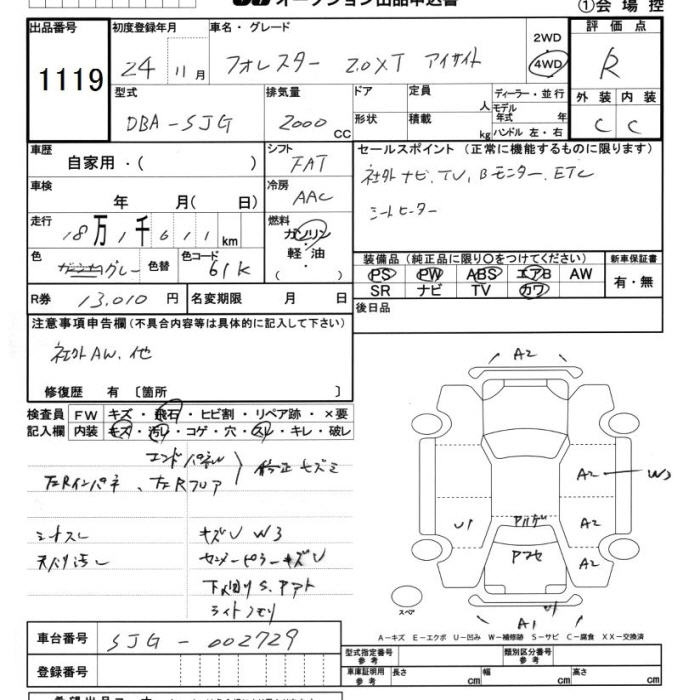 オークション出品申込書
①会場控
出品番号 1119
初度登録年月 24 11月
車名・グレード
フォレスター 2.0XT アイサイト
2WD
4WD
評価点 R
外装 内装
C C
型式 DBA-SJG
排気量 2000 CC
ドア 形状
定員 人
積載 kg
ディーラー・並行
モデル年式 年
ハンドル 左・右
車歴 自家用・( )
シフト FAT
セールスポイント (正常に機能するものに限ります)
社外ナビ、TV、Bモニター、ETC
シートヒーター
車検 年 月( 日)
冷房 AAC
走行 18万1千611km
燃料 ガソリン・軽油 ( )
色 グレー 色替 色コード 61K
装備品 (純正品に限り〇をつけてください)
PS PW ABS エアB AW
SR ナビ TV カワ
新車保証書
有・無
R券 13,010円 名変期限 月 日
後日品
注意事項申告欄(不具合内容等は具体的に記入して下さい)
社外AW、他
修復歴 有 〔箇所 〕
検査員記入欄
FW キズ・飛石・ヒビ割・リペア跡・×要
内装 キズ・汚れ・コゲ・穴・スレ・キレ・破レ
エンドパネル
左Rインパネ、左Rフロア
修正キズミ
シートスレ
天張リ汚レ
キズU W3
センターピラーキズU
下廻りS、アマト
ライトクモリ
A2
A2 W3
U1
A2
アルゲ
アマセ
A2
A1
スペア
A-キズ E-エクボ U-凹み W-補修跡 S-サビ C-腐食 XX-交換済
車台番号 SJG-002729
登録番号
型式指定番号 参考
類別区分番号 参考
車庫証明用 参考 長さ cm 幅 cm 高さ cm
希望出品コーナー